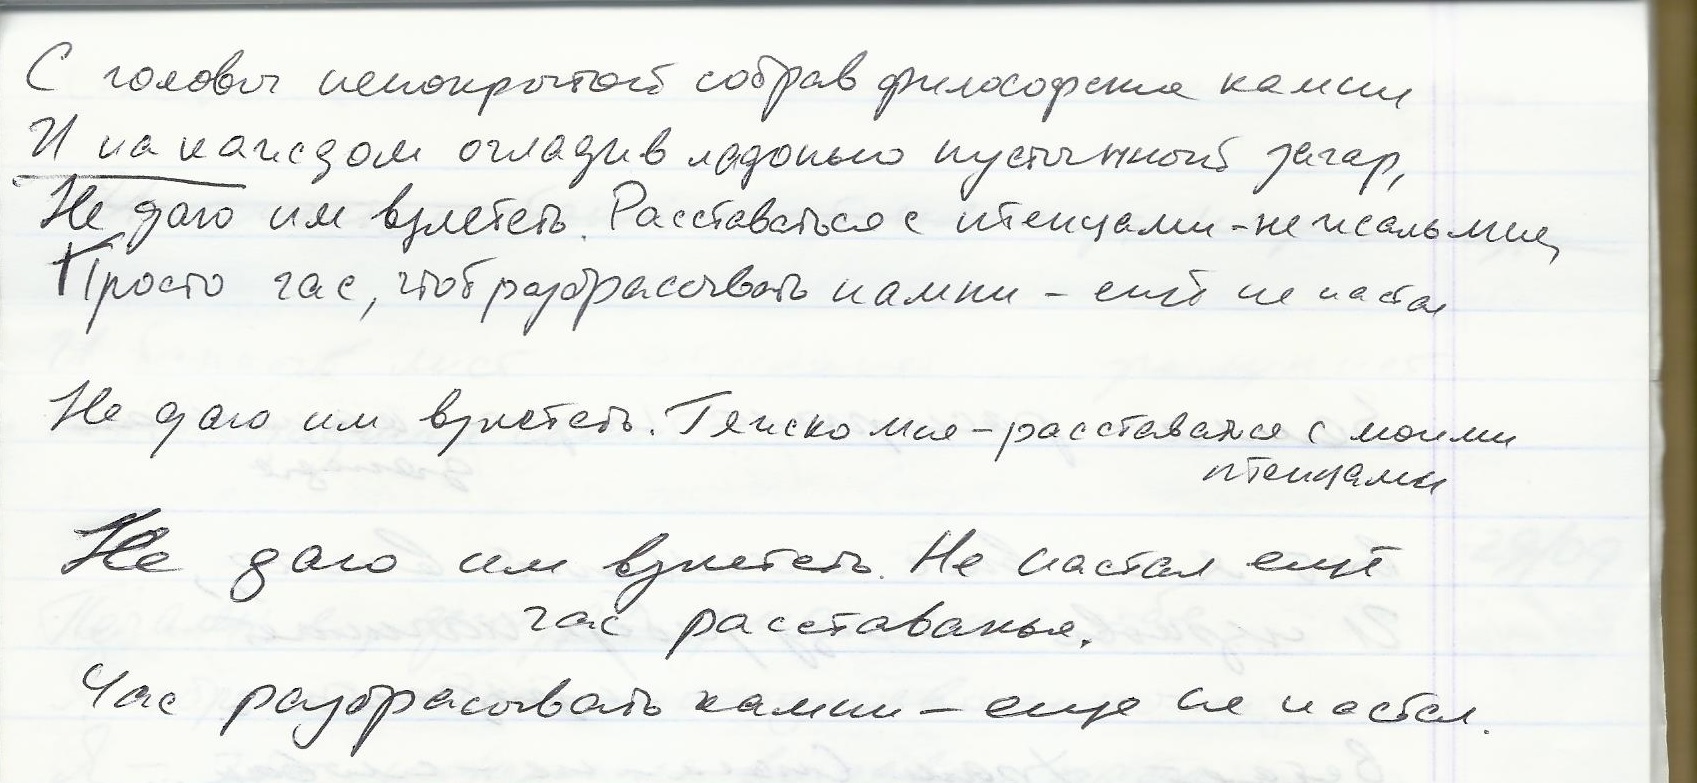 С головы непокрытой собрав философские камни
И на каждом огладив ладонью пустынный загар,
Не даю им взлететь. Расставаться с птенцами - не жаль мне,
Просто час, чтоб разбрасывать камни - ещё не настал
Не даю им взлететь. Тяжко мне - расставаться с моими
птенцами
Не даю им взлететь. Не настал ещё
час расставанья.
Час разбрасывать камни - еще не настал.